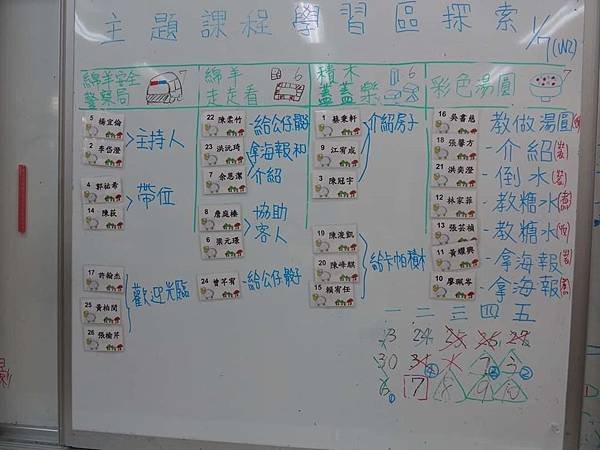 主題課程學習區探索
1/7(W2)
綿羊安全警察局 7
5 楊宜倫
2 李岱澄
主持人
4 郭祐希
14 陳萩
帶位
17 許翰杰
25 黃柏閔
26 張榆芹
歡迎光臨
綿羊走走看 6
22 陳霂竹
-給公仔骰子
23 洪沅琦
-拿海報和介紹
7 余思潔
8 詹庭榛
6 梁元璟
協助客人
24 曾不宥
-給公仔骰子
積木蓋蓋樂 6
1 蔡秉軒
9 江宥成
3 陳冠宇
介紹房子
19 陳浚凱
20 陳峰麒
15 賴宥任
給卡帕積木
彩色湯圓 7
16 吳書慈
-教做湯圓
18 張馨方
-介紹
21 洪奕澄
-倒水
12 林家菲
-教糖水
13 張芸禎
-教糖水
11 黃耀興
-拿海報
10 廖珮岑
-拿海報
一二三四五
23 24 25 26 27
30 31 1 2 3
6 7 8 9 10